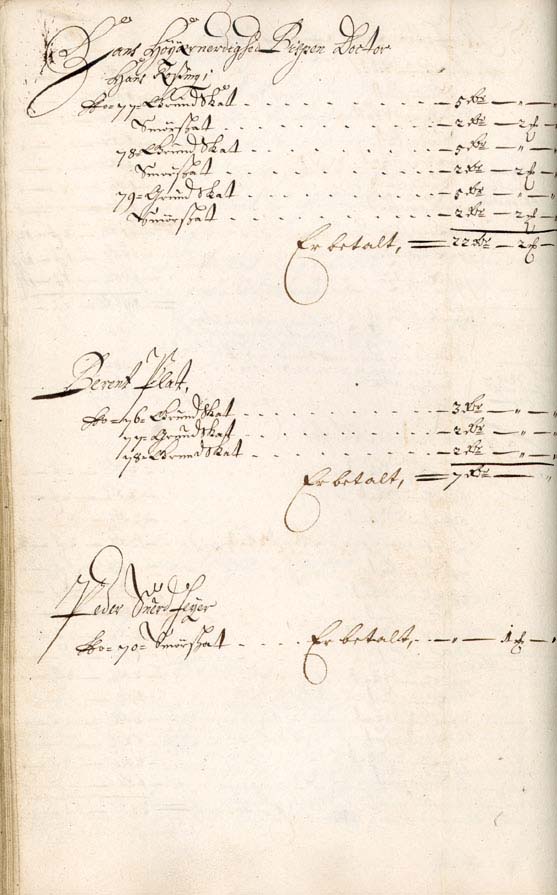 Hans Höyærwerdighed Bispen Doctor
Hans Rosing;
Ao= 77= Grund Skat . . . . . . . . 5 Rdr — „ —
Smörskat . . . . . . . . 2 Rdr — 2
78= Grund Skat . . . . . . . . 5 Rdr — „ —
Smörskat . . . . . . . . 2 Rdr — 2
79= Grund Skat . . . . . . . . 5 Rdr — „ —
Smörskat . . . . . . . . 2 Rdr — 2
Er betalt, = 22 Rdr — 2
Berent Plat,
Ao= 76= Grund Skat . . . . . . . . 3 Rdr — „ —
77= Grund Skat . . . . . . . . 2 Rdr — „ —
78= Grund Skat . . . . . . . . 2 Rdr — „ —
Er betalt, = 7 Rdr — „
Peder Suerdfeyer
Ao= 70= Smörskat . . . . Er betalt, — „ — 1